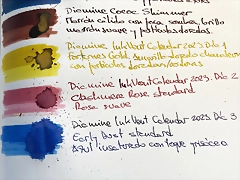 Diamine Cocoa Shimmer
Marrón cálido con poca sombra, brillo
marrón suave y partículas doradas
Diamine InkVent Calendar 2023. Día 1
Fortune's Gold. Amarillo dorado
con partículas doradas
Diamine InkVent Calendar 2023. Día 2
Cashmere Rose standard
Rosa suave
Diamine InkVent Calendar 2023. Día 3
Early Dusk standard
Azul insaturado con toque grisáceo